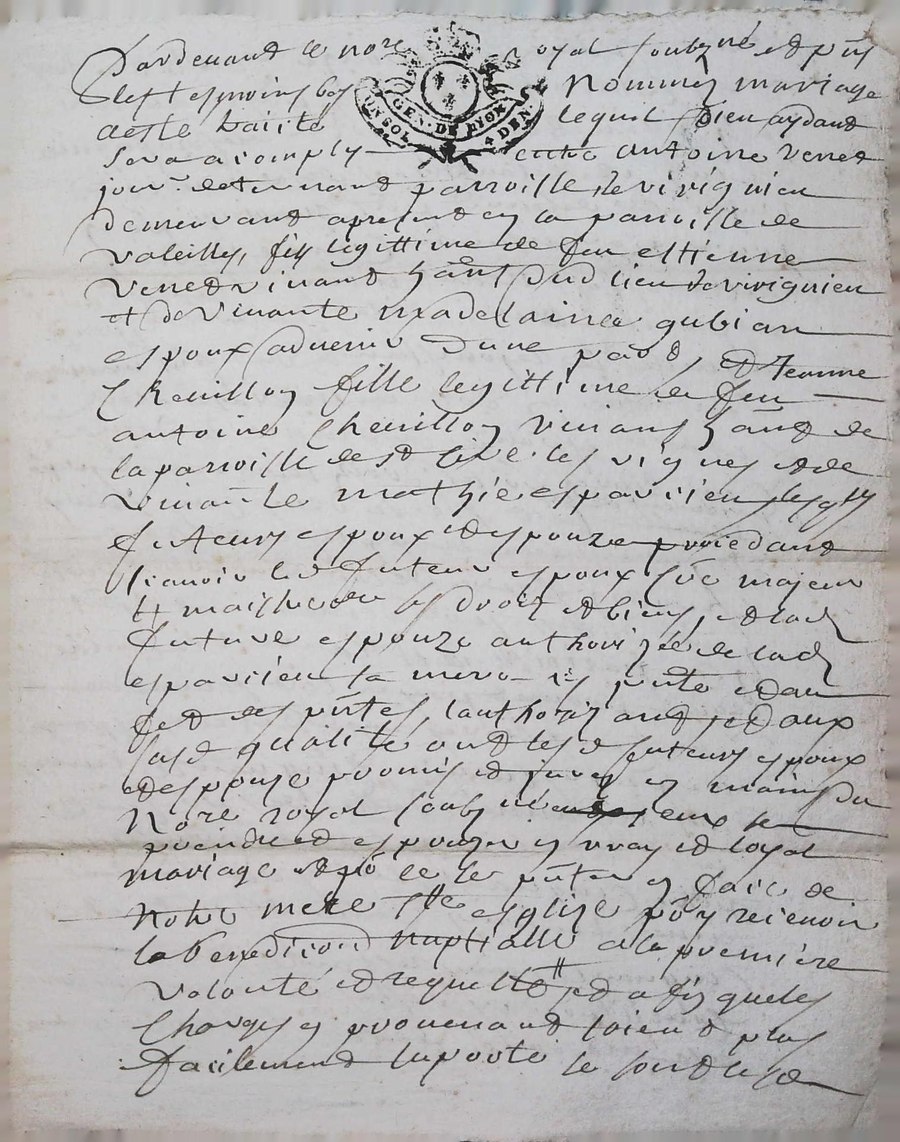 Pardevant le nore royal soubzné et pnts
les tesmoins bas nommés mariage
a esté traité lequel Dieu aydant
sera acomply entre antoine venet
GEN. DE LYON
UN SOL
DEN.
parroisse de virignieu
demeurant apresent en la parroisse de
valeilles, filz legittime de feu estienne
venet vivant hant dud lieu de virignieu
et de vivante madelaine gubian
espoux advenir d'une part, et Jeanne
Chevillon fille legittime de feu
antoine Chevillon vivant hant de
la parroisse de st les vignes et de
vivante mathie espavieu lesqls
futeurs espoux et espouze procedant
scavoir led futeur espoux côe majeur
et maistre de ses droits et biens, et lad
future espouze authorizée de lad
espavieu sa mere icy pnte et au
fet des pntes l'authorizant et aux
sasd qualité ont lesd futeurs espoux
et espouze promis et juré es mains du
Nore royal soubzné
prendre et espouzer en vray et loyal
mariage et po ce se pnter en face de
notre mere ste esglize po y recevoir
la benediction nuptialle a la premiere
volonté et requette et a fin que les
Charges en provenant soient plus
facilement suporté se sont lesd